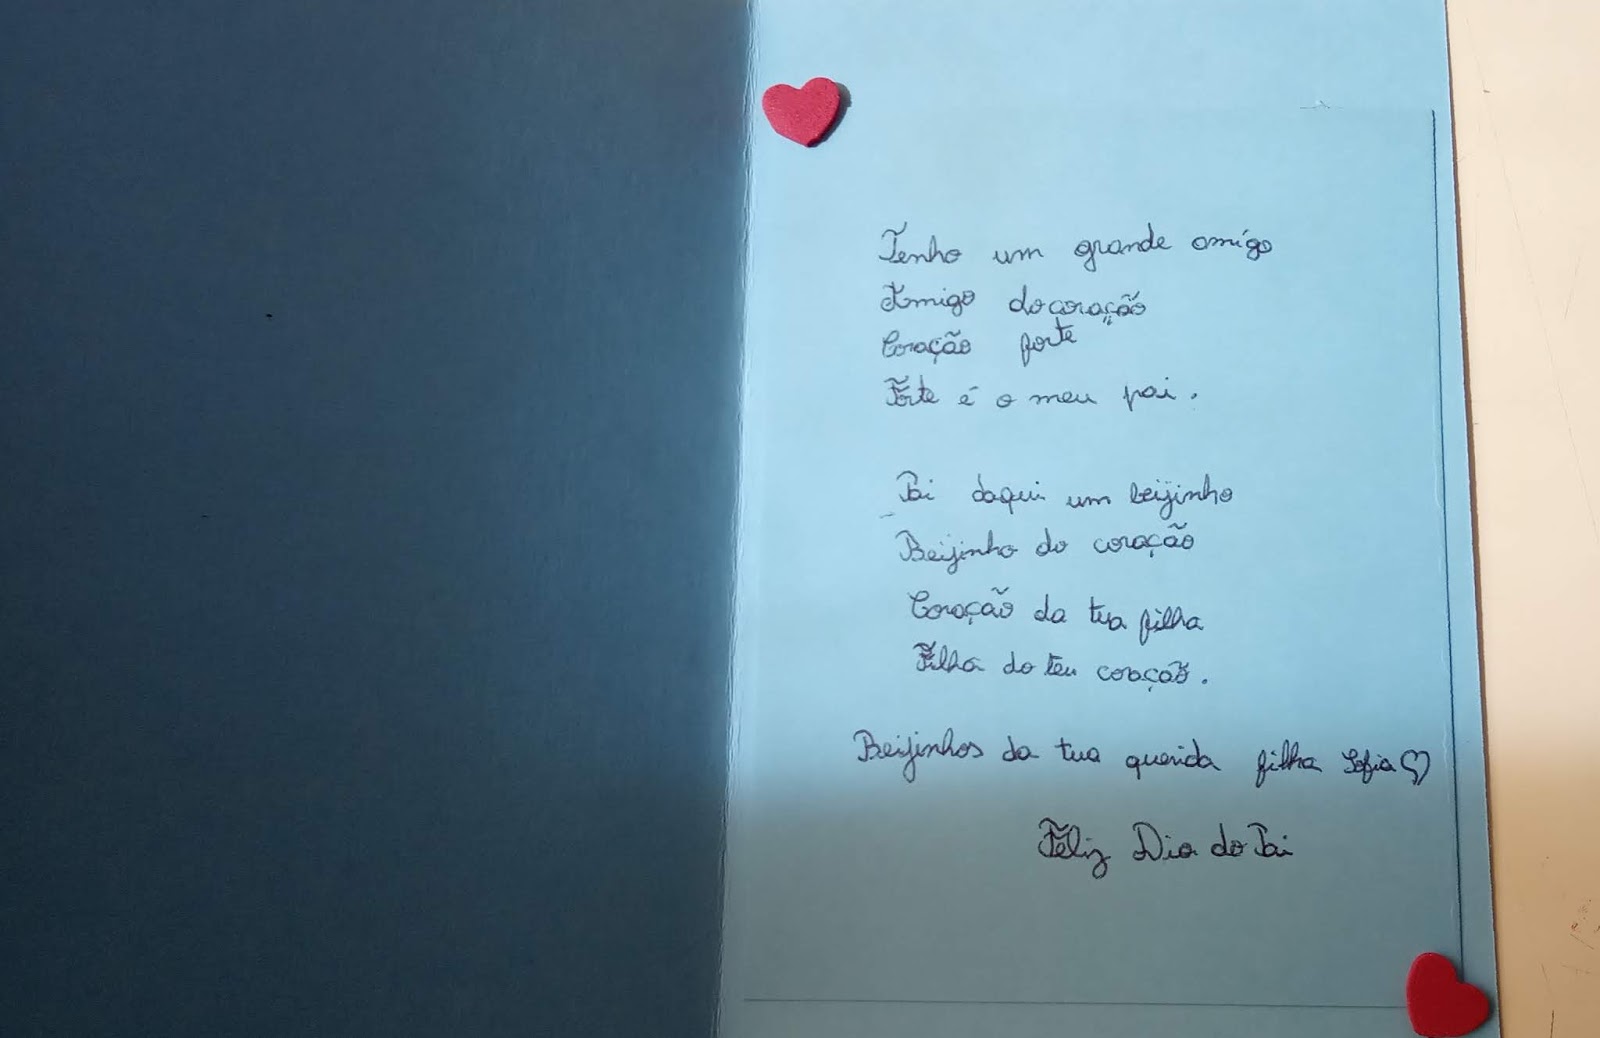 Tenho um grande amigo
Amigo do coração
Coração forte
Forte é o meu pai.
Pai daqui um beijinho
Beijinho do coração
Coração da tua filha
Filha do teu coração.
Beijinhos da tua querida filha Sofia
Feliz Dia do Pai